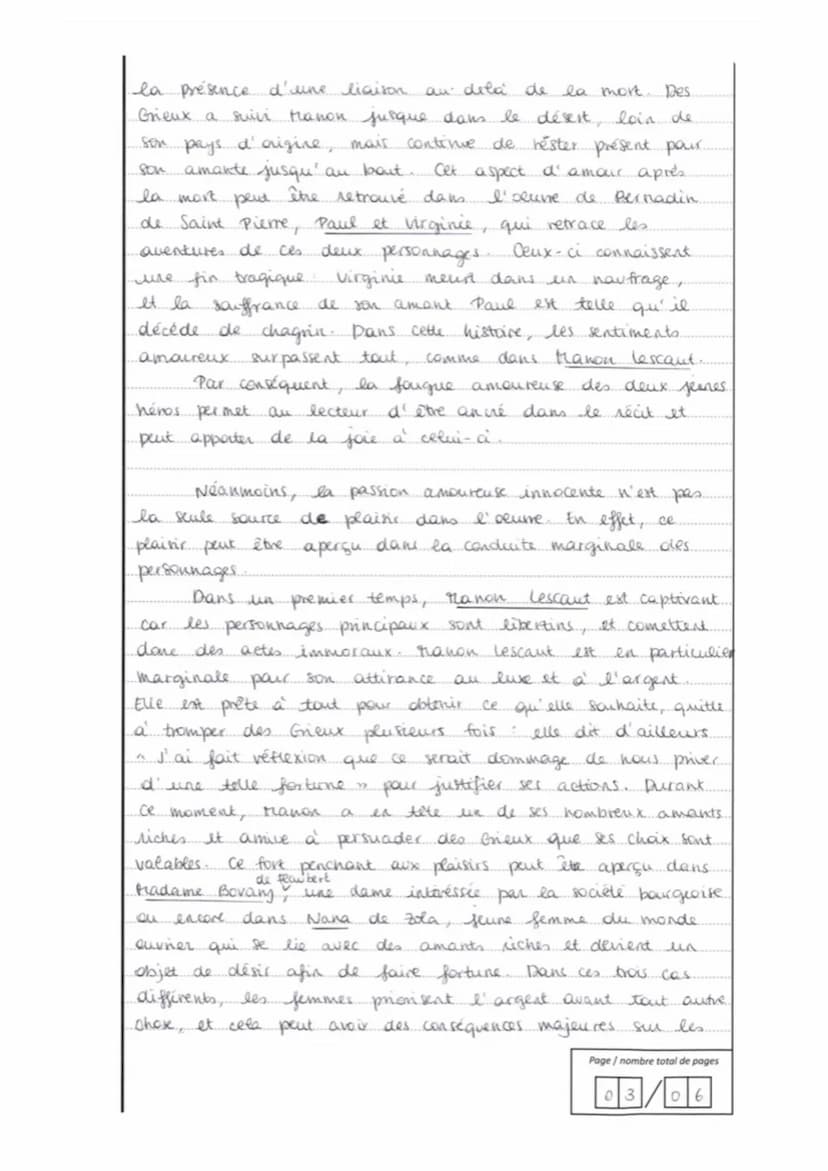 la présence d'une liaison au-delà de la mort. Des
Grieux a suivi Manon jusque dans le désert, loin de
son pays d'origine, mais continue de réster présent pour
son amante jusqu'au bout. Cet aspect d'amour après
la mort peut être retrouvé dans l'oeuvre de Bernadin
de Saint Pierre, Paul et Virginie, qui retrace les
aventures de ces deux personnages. Ceux-ci connaissent
une fin tragique : Virginie meurt dans un naufrage,
et la souffrance de son amant Paul est telle qu'il
décède de chagrin. Dans cette histoire, les sentiments
amoureux surpassent tout, comme dans Manon Lescaut.
Par conséquent, la fougue amoureuse des deux jeunes
héros permet au lecteur d'être ancré dans le récit et
peut apporter de la joie à celui-ci.
Néanmoins, la passion amoureuse innocente n'est pas
la seule source de plaisir dans l'oeuvre. En effet, ce
plaisir peut être aperçu dans la conduite marginale des
personnages.
Dans un premier temps, Manon Lescaut est captivant
car les personnages principaux sont libertins, et comettent
donc des actes immoraux. Manon Lescaut est en particulier
marginale pour son attirance au luxe et à l'argent.
Elle est prête à tout pour obtenir ce qu'elle souhaite, quitte
à tromper des Grieux plusieurs fois : elle dit d'ailleurs
« J'ai fait réflexion que ce serait dommage de nous priver
d'une telle fortune » pour justifier ses actions. Durant
ce moment, Manon a en tête un de ses nombreux amants
riches et arrive à persuader des Grieux que ses choix sont
valables. Ce fort penchant aux plaisirs peut être aperçu dans
Madame Bovary de Flaubert, une dame intéréssée par la société bourgeoise
ou encore dans Nana de Zola, jeune femme du monde
ouvrier qui se lie avec des amants riches et devient un
objet de désir afin de faire fortune. Dans ces trois cas
différents, les femmes priorisent l'argent avant tout autre
chose, et cela peut avoir des conséquences majeures sur les
Page / nombre total de pages
03/06